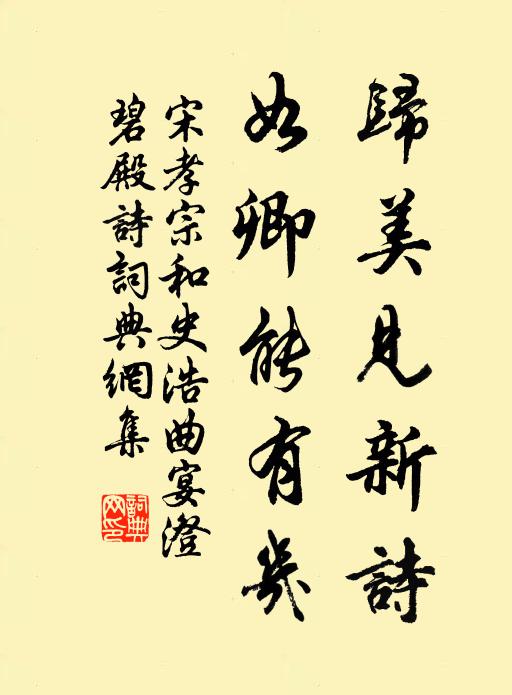 歸美見新詩
如卿能有幾
宋孝宗和史浩曲宴澄
碧殿詩詞典網集
詞典網印